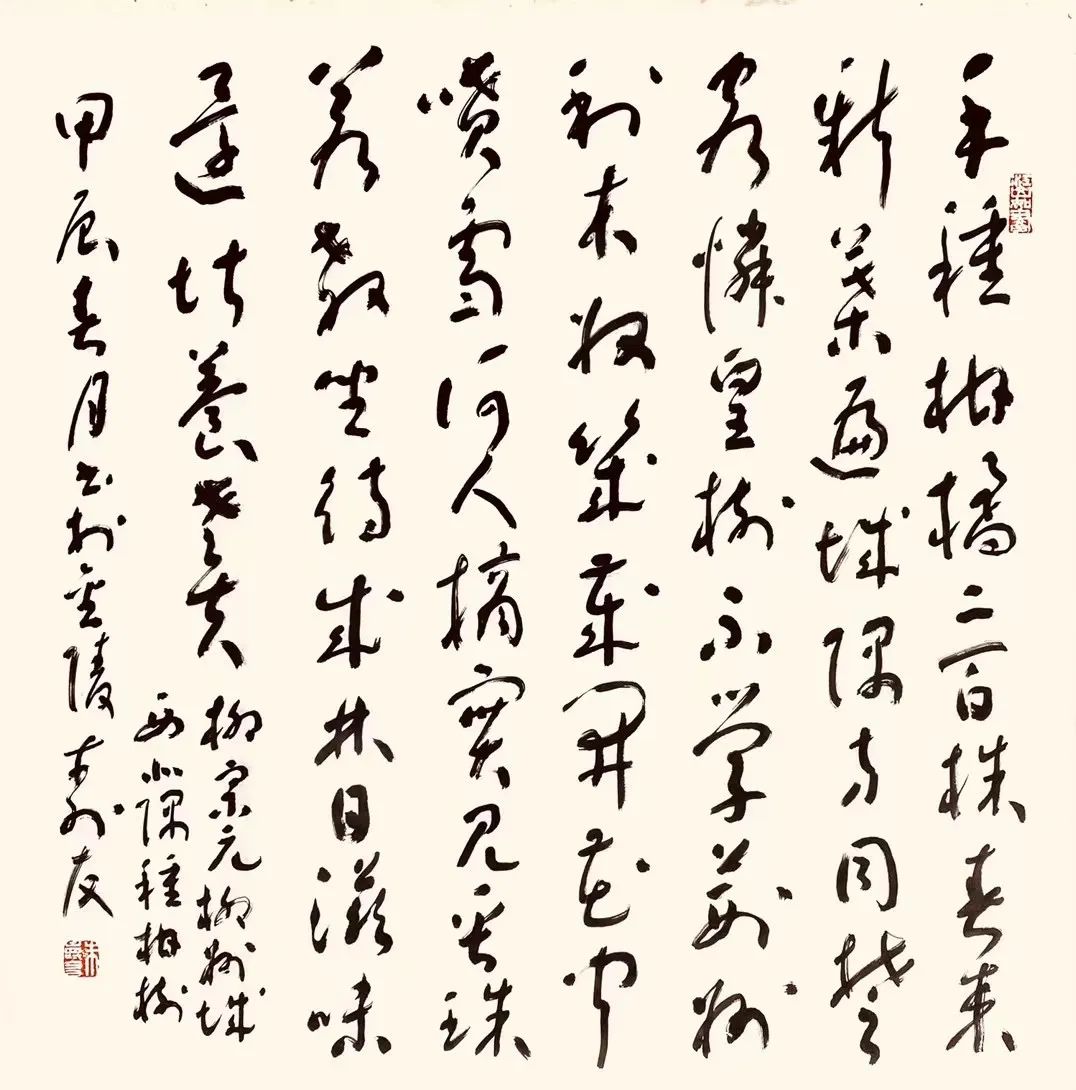 手種柑橘二百株春来
新葉遍城隅方同楚
客憐皇樹不学荊州
利木奴幾歲開花聞
噴雪何人摘實見垂珠
若教坐待成林日滋味
還堪養老夫 柳宗元柳州城
西北隅種柑樹
甲辰春月書於金陵壽友